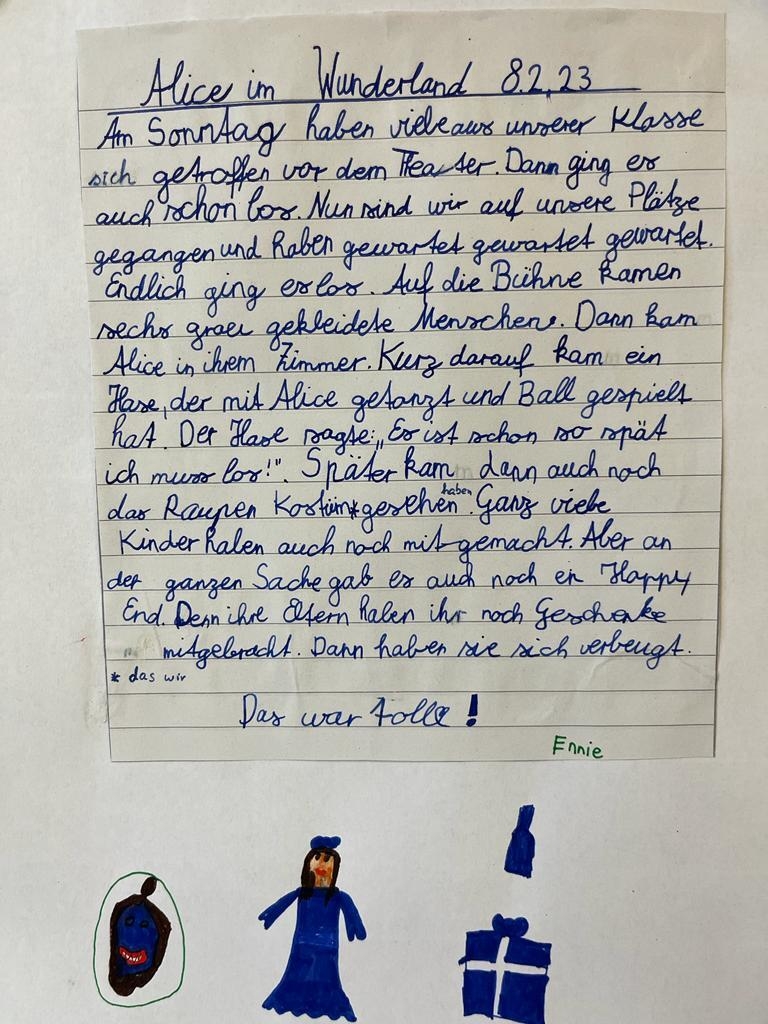 Alice im Wunderland 8.2.23
Am Sonntag haben viele aus unserer Klasse
sich getroffen vor dem Theater. Dann ging es
auch schon los. Nun sind wir auf unsere Plätze
gegangen und haben gewartet gewartet gewartet.
Endlich ging es los. Auf die Bühne kamen
sechs graeu gekleidete Menschen. Dann kam
Alice in ihrem Zimmer. Kurz darauf kam ein
Hase, der mit Alice getanzt und Ball gespielt
hat. Der Hase sagte: „Es ist schon so spät
ich muss los!". Später kam dann auch noch
das Raupen Kostüm* gesehen haben. Ganz viele
Kinder haben auch noch mit gemacht. Aber an
der ganzen Sache gab es auch noch ein Happy
End. Denn ihre Eltern haben ihr noch Geschenke
mitgebracht. Dann haben sie sich verbeugt.
* das wir
Das war tolle!
Ennie